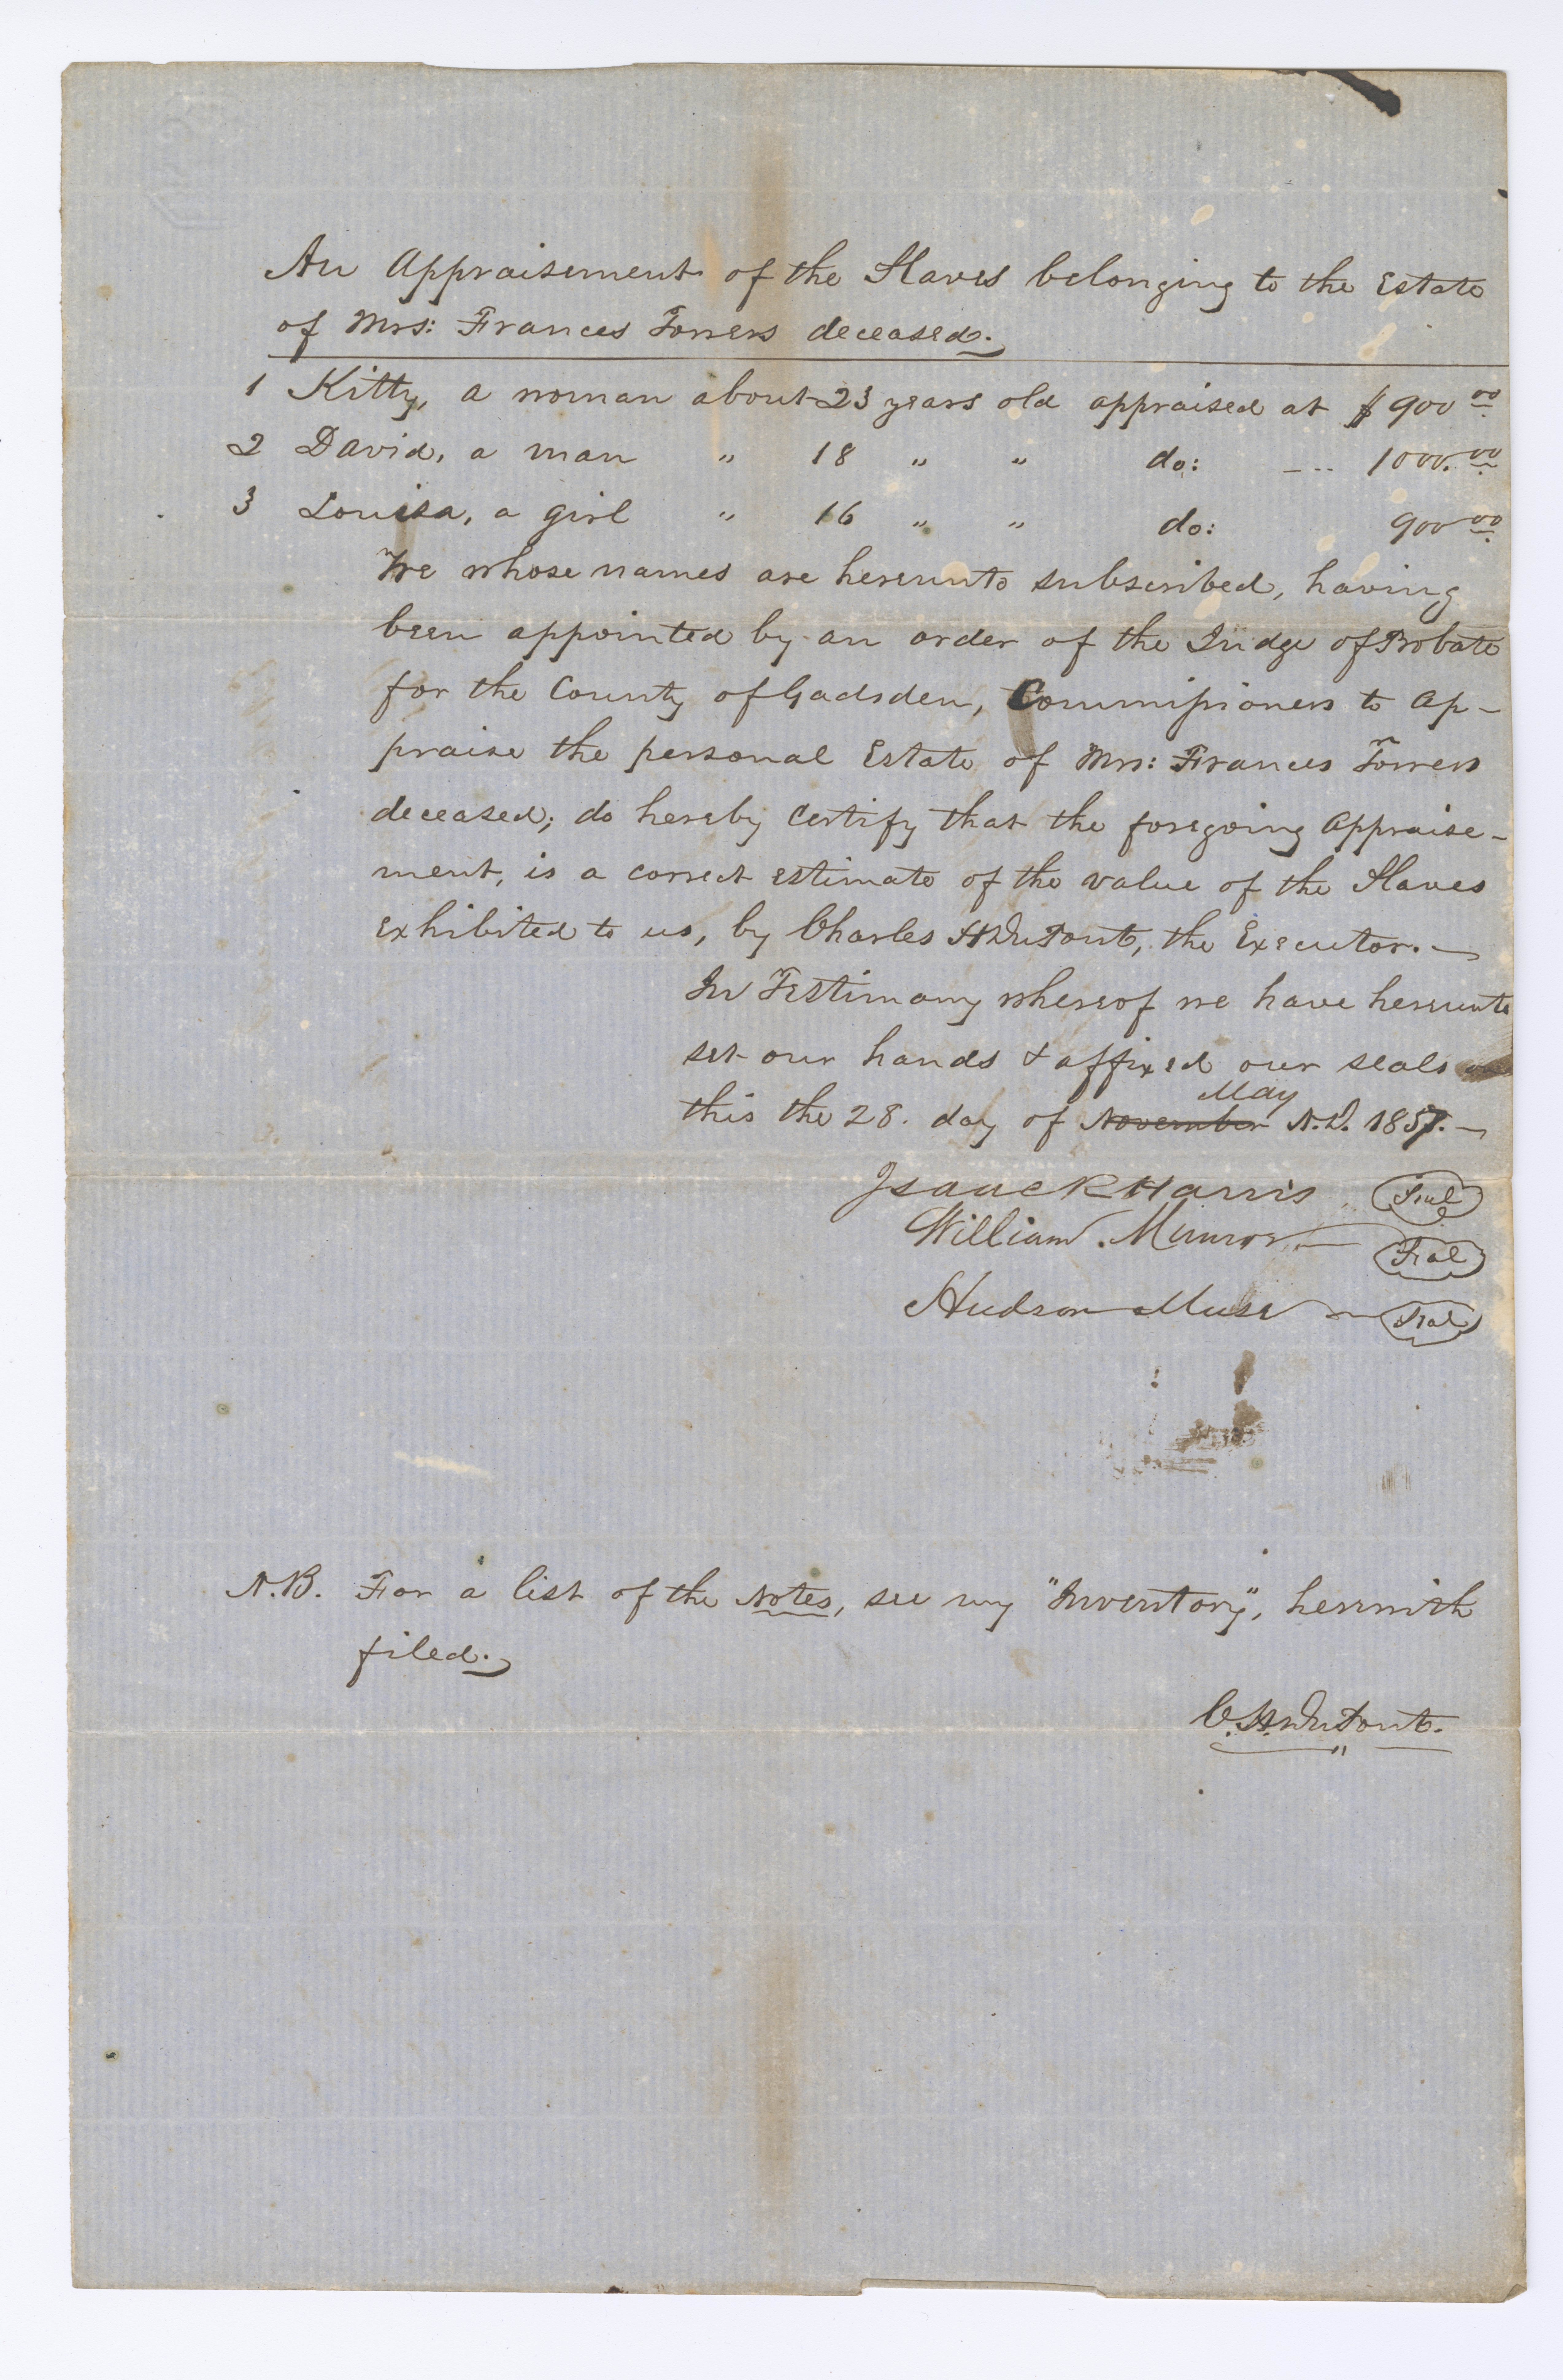 An Appraisement of the Slaves belonging to the Estate
of Mrs: Frances Forrers deceased.
1 Kitty, a woman about 23 years old appraised at $900 00
2 David, a man " 18 " " do: --- 1000. 00
3 Louisa, a girl " 16 " " do: 900 00
We whose names are hereunto subscribed, having
been appointed by an order of the Judge of Probate
for the County of Gadsden, Commissioners to ap-
praise the personal Estate of Mrs: Frances Forrers
deceased; do hereby certify that the foregoing appraise-
ment, is a correct estimate of the value of the Slaves
exhibited to us, by Charles H DuPont, the Executor.
In Testimony whereof we have hereunto
set our hands & affixed our seals
this the 28. day of November May A.D. 1857.
Isaac R Harris Seal
William. Munroe Seal
Hudson Muse Seal
N.B. For a list of the Notes, see my "Inventory", herewith
filed.
C. H. DuPont.